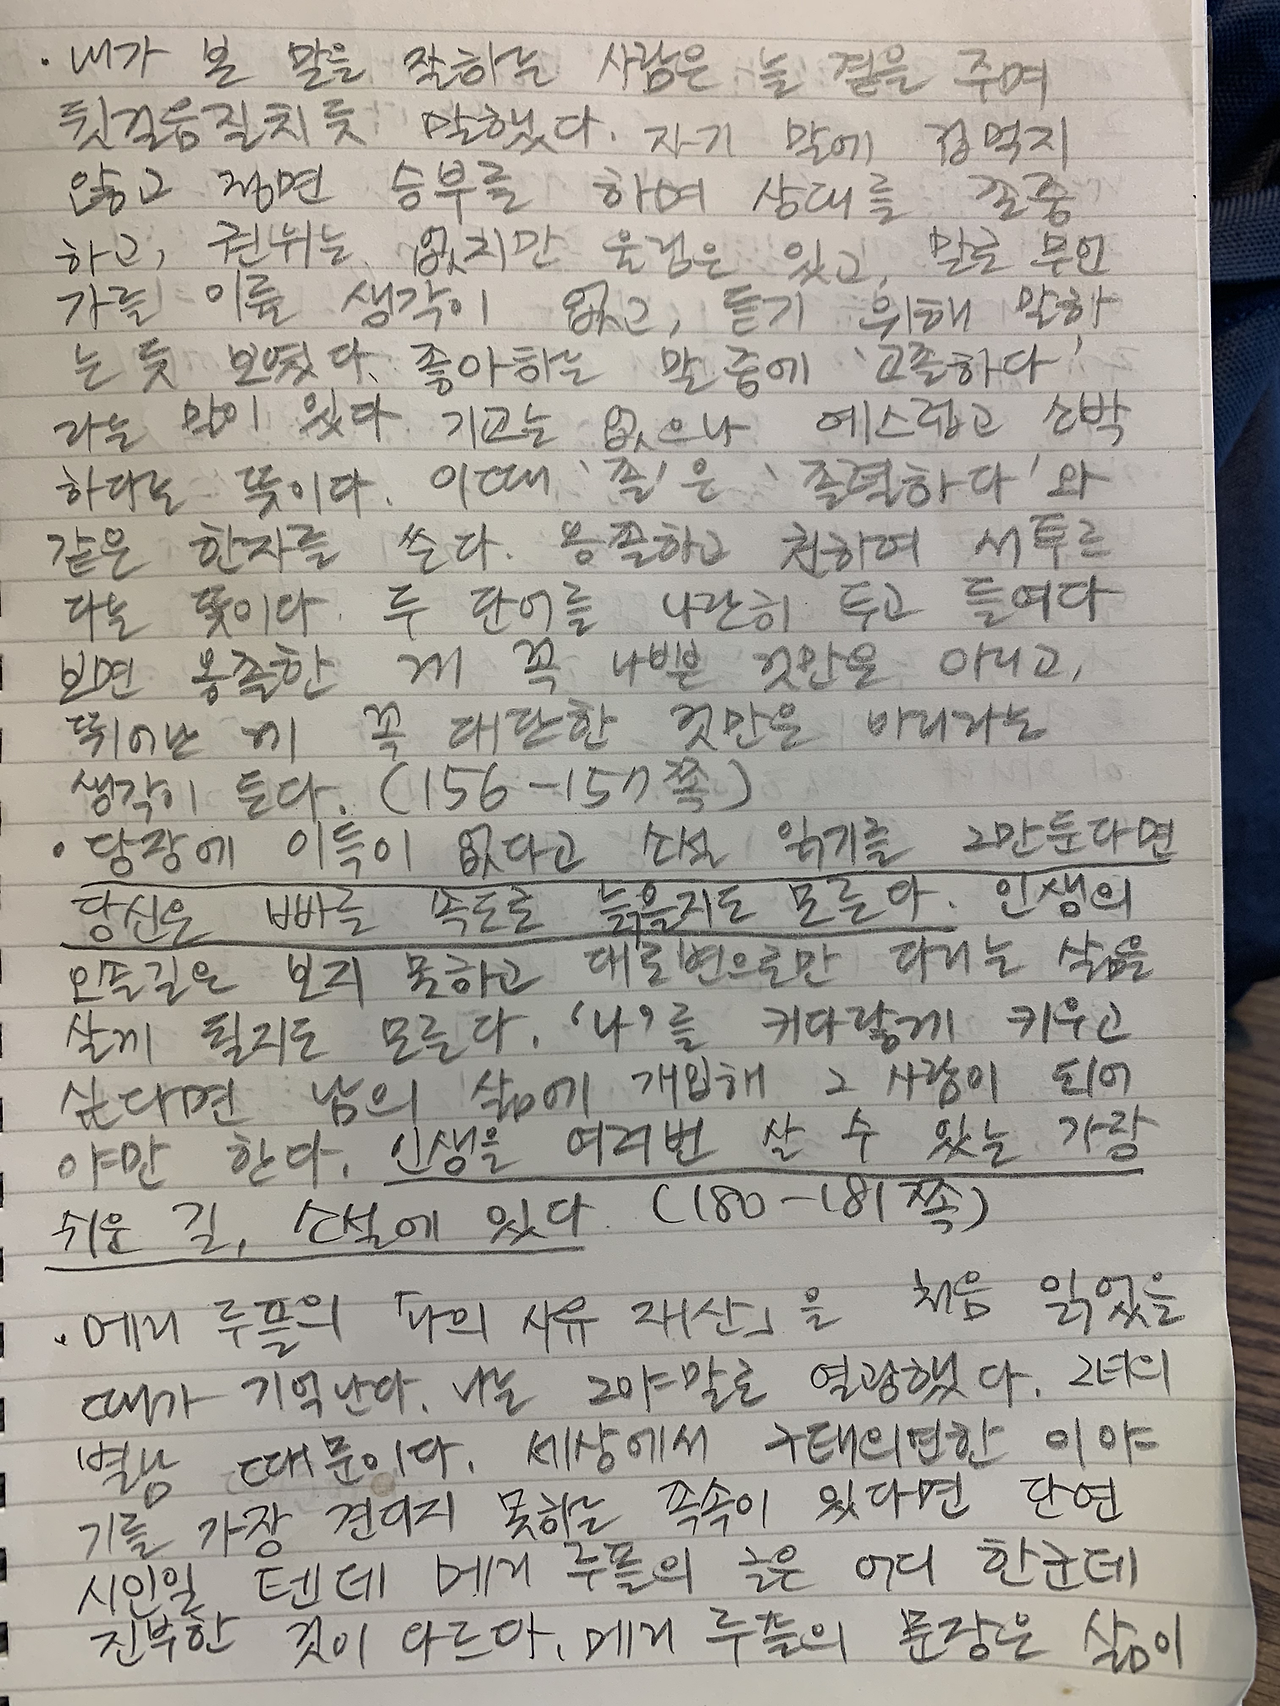 · 내가 본 말을 잘하는 사람은 늘 곁을 주며
뒷걸음질치듯 말했다. 자기 말에 겁먹지
않고 정면 승부를 하며 상대를 존중
하고, 권위는 없지만 울림은 있고, 말로 무언
가를 이룰 생각이 없고, 듣기 위해 말하
는 듯 보였다. 좋아하는 말 중에 '고졸하다'
라는 말이 있다. 기교는 없으나 예스럽고 소박
하다는 뜻이다. 이때 '졸'은 '졸렬하다'와
같은 한자를 쓴다. 옹졸하고 천하여 서투르
다는 뜻이다. 두 단어를 나란히 두고 들여다
보면 옹졸한 게 꼭 나쁜 것만은 아니고,
뛰어난 게 꼭 대단한 것만은 아니라는
생각이 든다. (156-157쪽)
· 당장에 이득이 없다고 소설 읽기를 그만둔다면
당신은 빠를 속도로 늙을지도 모른다. 인생의
오솔길은 보지 못하고 대로변으로만 다니는 삶을
살게 될지도 모른다. '나'를 커다랗게 키우고
싶다면 남의 삶에 개입해 그 사람이 되어
야만 한다. 인생을 여러번 살 수 있는 가장
쉬운 길, 소설에 있다. (180-181쪽)
· 메리 루플의 「나의 사유 재산」을 처음 읽었을
때가 기억난다. 나는 그야말로 열광했다. 그녀의
별남 때문이다. 세상에서 구태의연한 이야
기를 가장 견디지 못하는 족속이 있다면 단연
시인일 텐데 메리 루플의 글은 어디 한군데
진부한 것이 다르다. 메리 루플의 문장은 삶이